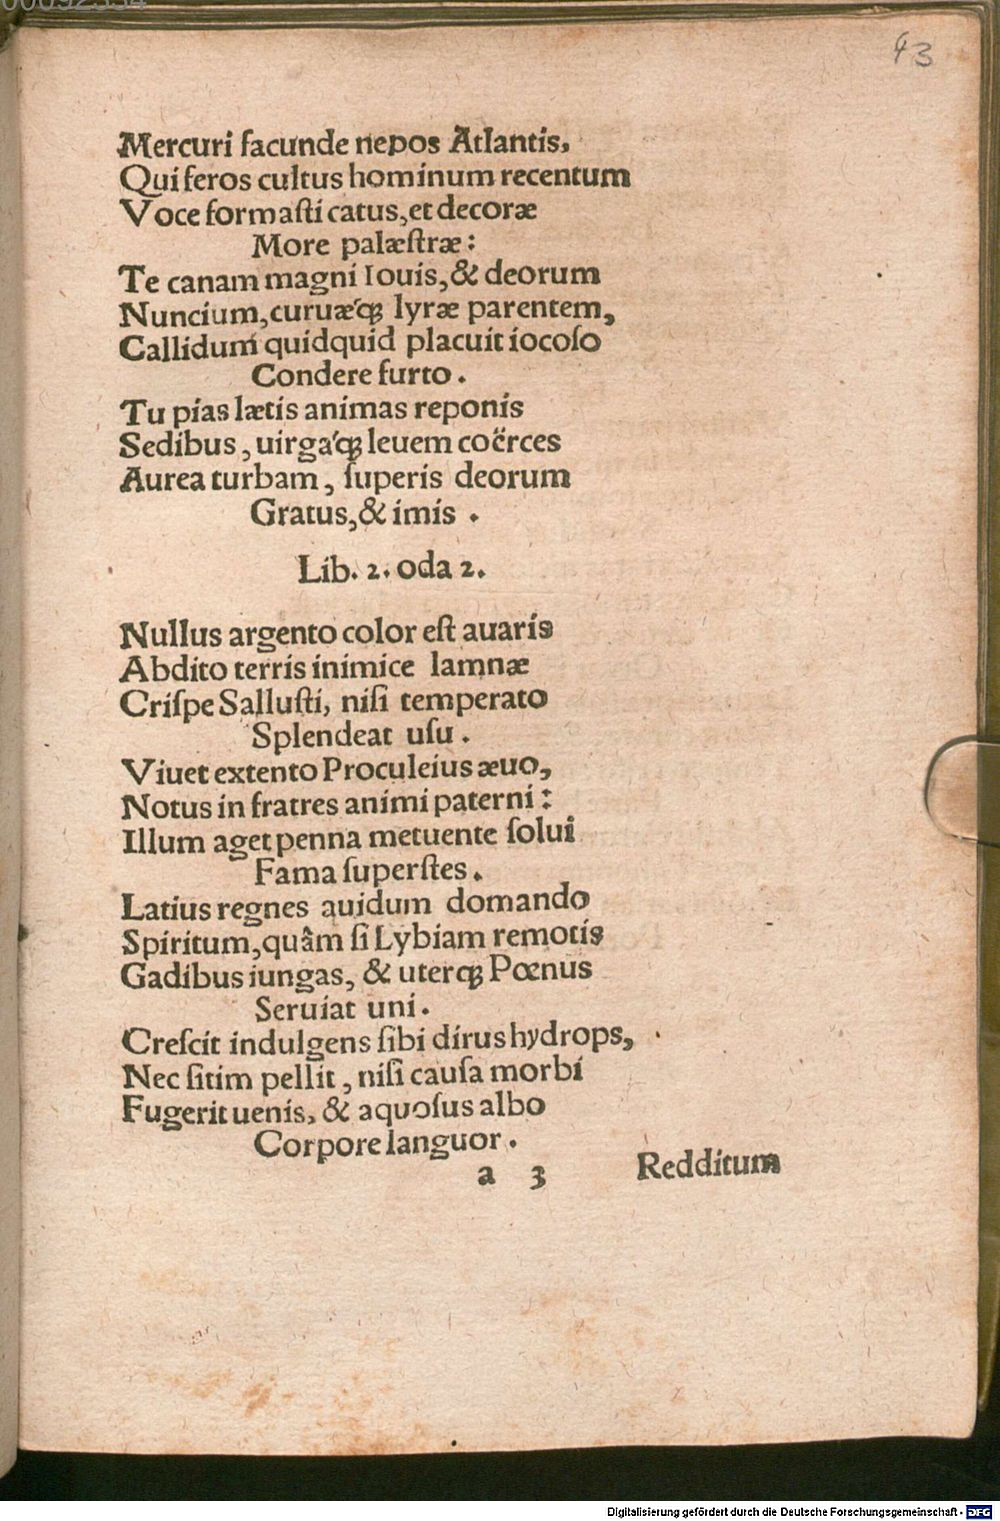 43
Mercuri facunde nepos Atlantis,
Qui feros cultus hominum recentum
Voce formaſti catus, et decoræ
More palæſtræ:
Te canam magni Iouis, & deorum
Nuncium, curuæ´qꝫ lyræ parentem,
Callidum quidquid placuit iocoſo
Condere furto.
Tu pias lætis animas reponis
Sedibus, uirga´qꝫ leuem coërces
Aurea turbam, ſuperis deorum
Gratus, & imis.
Lib. 2. oda 2.
Nullus argento color eſt auaris
Abdito terris inimice lamnæ
Criſpe Salluſti, niſi temperato
Splendeat uſu.
Viuet extento Proculeius æuo,
Notus in fratres animi paterni:
Illum aget penna metuente ſolui
Fama ſuperſtes.
Latius regnes auidum domando
Spiritum, quâm ſi Lybiam remotis
Gadibus iungas, & uterqꝫ Pœnus
Seruiat uni.
Creſcit indulgens ſibi dirus hydrops,
Nec ſitim pellit, niſi cauſa morbi
Fugerit uenis, & aquoſus albo
Corpore languor.
a 3 Redditum
Digitalisierung gefördert durch die Deutsche Forschungsgemeinschaft - DFG